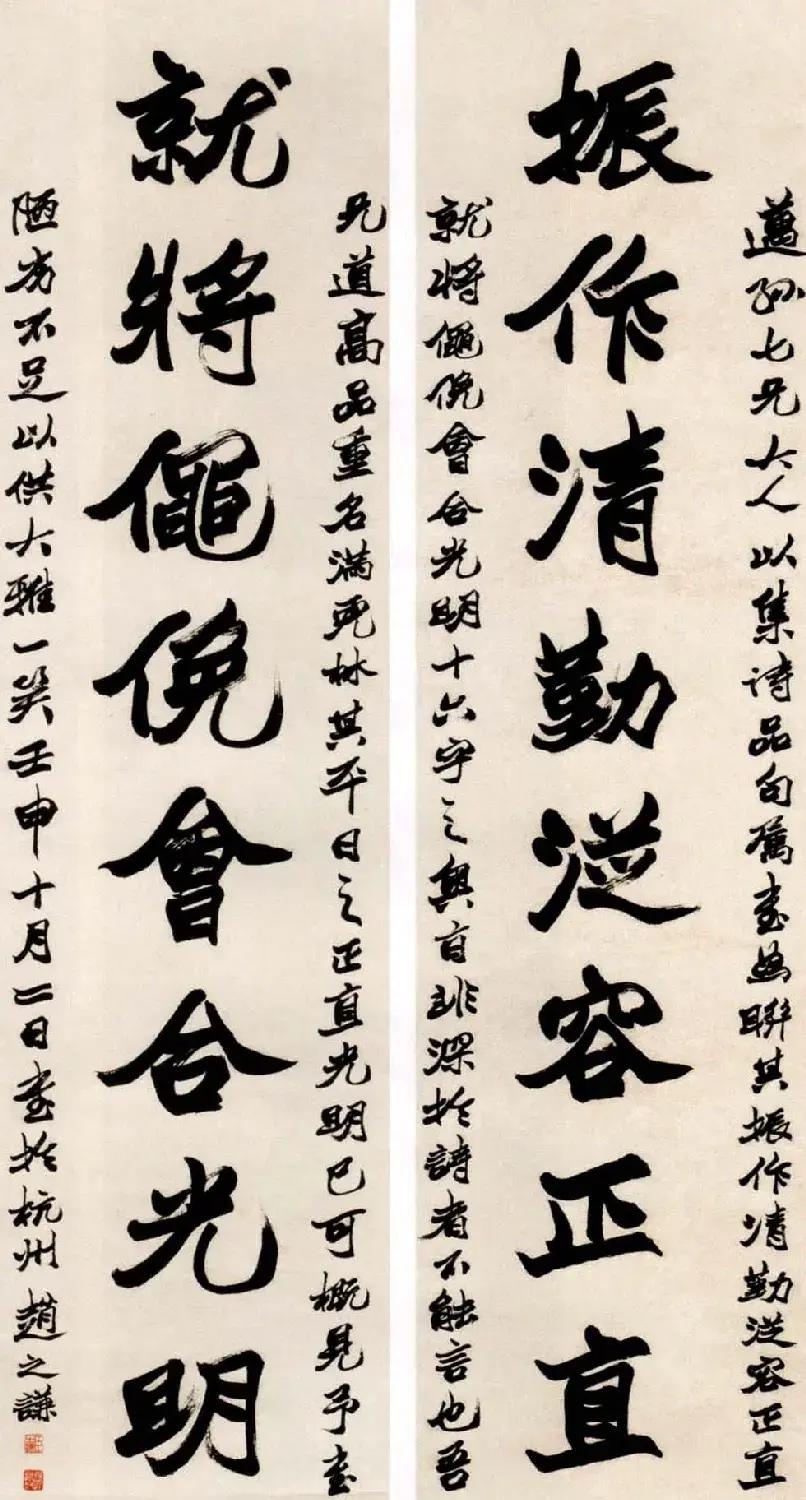 邁孫七兄大人以集詩品句屬書為聯其振作清勤從容正直
振作清勤從容正直
就將僶俛會合光明十六字之奧旨非深於詩者不能言也吾
兄道高品重名滿林其平日之正直光明已可概見予書
就將僶俛會合光明
陋劣不足以供大雅一笑壬申十月二日書於杭州趙之謙